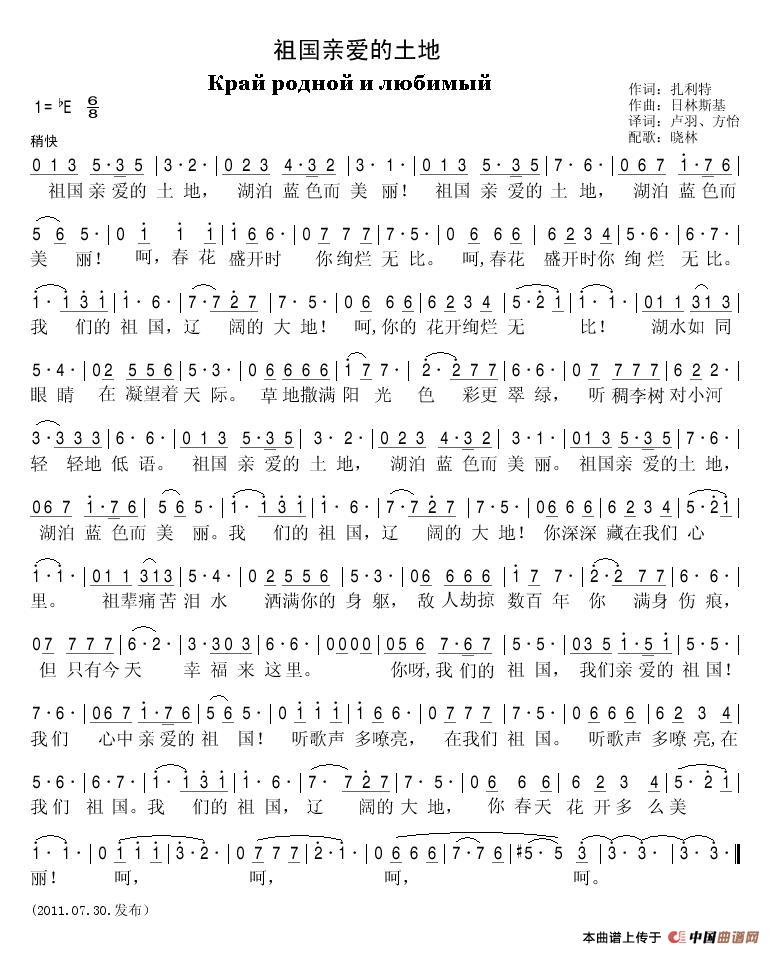 祖国亲爱的土地
Край родной и любимый
作词：扎利特
1= ♭E 6/8
作曲：日林斯基
译词：卢羽、方怡
配歌：晓林
稍快
0 1 3 5·3 5 | 3·2· | 0 2 3 4·3 2 | 3·1· | 0 1 3 5·3 5 | 7·6· | 0 6 7 1·7 6 |
祖国 亲 爱的 土 地， 湖泊 蓝 色而 美 丽！ 祖国 亲 爱的 土 地， 湖泊 蓝 色而
5 6 5· | 0 1 1 1 | 1 6 6· | 0 7 7 7 | 7·5· | 0 6 6 6 | 6 2 3 4 | 5·6· | 6·7· |
美 丽！ 呵，春 花 盛开时 你绚烂 无 比。 呵,春花 盛开时你 绚 烂 无 比。
1· 1 3 1 | 1·6· | 7·7 2 7 | 7·5· | 0 6 6 6 | 6 2 3 4 | 5·2 1 | 1·1· | 0 1 1 3 1 3 |
我 们的 祖 国，辽 阔的 大 地！ 呵,你的 花开绚烂 无 比！ 湖水如 同
5·4· | 0 2 5 5 6 | 5·3· | 0 6 6 6 6 | 1 7 7· | 2·2 7 7 | 6·6· | 0 7 7 7 7 | 6 2 2· |
眼 睛 在 凝望着 天 际。 草地撒满 阳 光 色 彩更 翠 绿， 听 稠李树 对小河
3·3 3 3 | 6·6· | 0 1 3 5·3 5 | 3·2· | 0 2 3 4·3 2 | 3·1· | 0 1 3 5·3 5 | 7·6· |
轻 轻地 低 语。 祖国 亲 爱的 土 地， 湖泊 蓝 色而 美 丽。 祖国亲 爱的 土 地，
0 6 7 1·7 6 | 5 6 5· | 1· 1 3 1 | 1·6· | 7·7 2 7 | 7·5· | 0 6 6 6 | 6 2 3 4 | 5·2 1 |
湖泊 蓝 色而 美 丽。我 们的 祖 国，辽 阔的 大 地！ 你深深 藏在我们 心
1·1· | 0 1 1 3 1 3 | 5·4· | 0 2 5 5 6 | 5·3· | 0 6 6 6 6 | 1 7 7· | 2·2 7 7 | 6·6· |
里。 祖辈痛 苦 泪 水 洒满你的 身 躯， 敌 人劫掠 数百 年 你 满身 伤 痕，
0 7 7 7 7 | 6·2· | 3·3 0 3 | 6·6· | 0 0 0 0 | 0 5 6 7·6 7 | 5·5· | 0 3 5 1·5 1 | 5·5· |
但 只有今 天 幸 福 来 这 里。 你呀,我 们的 祖 国， 我们亲 爱的 祖 国！
7·6· | 0 6 7 1·7 6 | 5 6 5· | 0 1 1 1 | 1 6 6· | 0 7 7 7 | 7·5· | 0 6 6 6 | 6 2 3 4 |
我 们 心中 亲 爱的 祖 国！ 听歌声 多嘹亮， 在我们 祖 国。 听歌声 多嘹 亮,在
5·6· | 6·7· | 1· 1 3 1 | 1·6· | 7· 7 2 7 | 7·5· | 0 6 6 6 | 6 2 3 4 | 5·2 1 |
我 们 祖 国。我 们的 祖 国，辽 阔的 大 地， 你 春天 花 开多 么 美
1·1· | 0 1 1 1 | 3·2· | 0 7 7 7 | 2·1· | 0 6 6 6 | 7·7 6 | #5·5 3 | 3·3· | 3·3· ‖
丽！ 呵， 呵， 呵， 呵。
(2011.07.30.发布）
本曲谱上传于 中国曲谱网